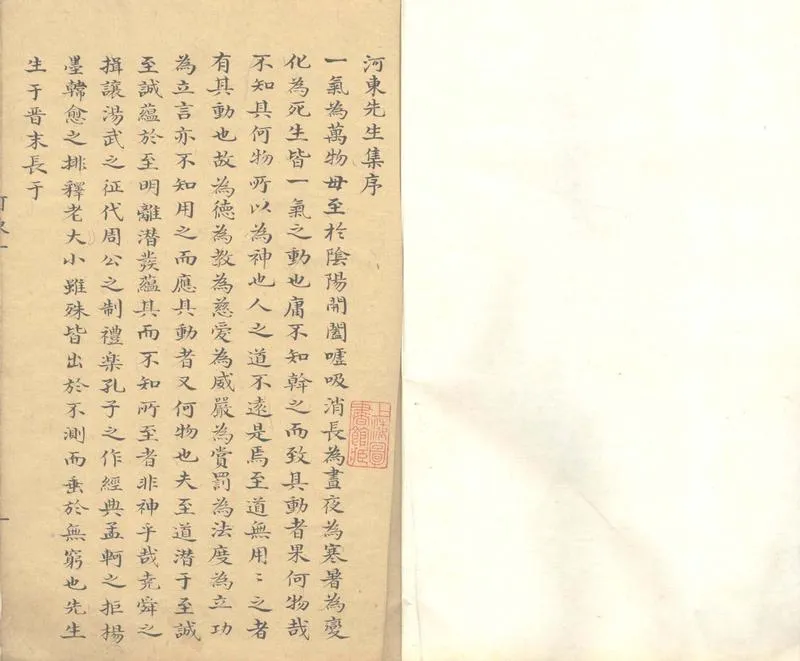 河東先生集序
一氣為萬物母至於陰陽開闔噓吸消長為晝夜為寒暑為變
化為死生皆一氣之動也庸不知幹之而致其動者果何物哉
不知其何物所以為神也人之道不遠是焉至道無用〻之者
有其動也故為德為教為慈愛為威嚴為賞罰為法度為立功
為立言亦不知用之而應其動者又何物也夫至道潜于至誠
至誠蘊於至明離潜發蘊其而不知所至者非神乎哉尭舜之
揖讓湯武之征代周公之制禮楽孔子之作經典孟軻之拒揚
墨韓愈之排釋老大小雖殊皆出於不測而垂於無窮也先生
生于晋末長于
上海圖
書館藏